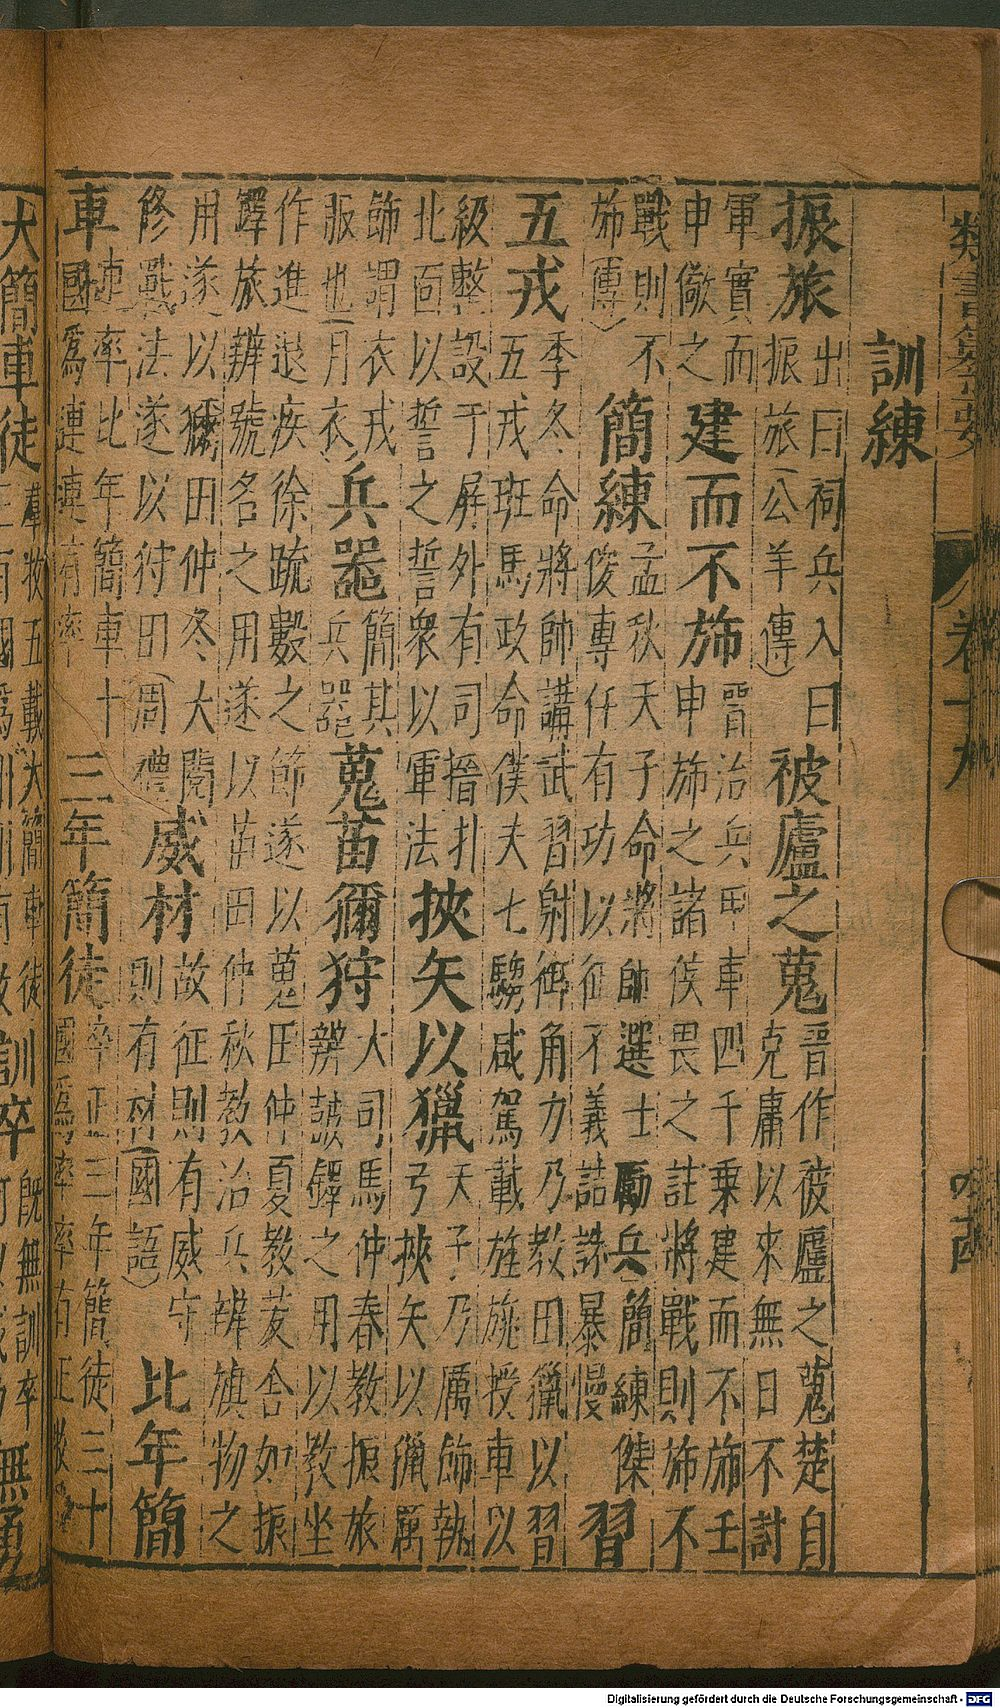 訓練
振旅 出曰祠兵入曰振旅(公羊傳) 被廬之蒐 晉作彼廬之蒐楚自克庸以來無日不討
軍實而申儆之 建而不斾 晉治兵甲車四千乗建而不斾壬申斾之諸侯畏之註將戰則斾不
戰則不斾(傳) 簡練 孟秋天子命將帥選士勵兵簡練傑俊專任有功以征不義詰誅暴慢 習
五戎 季冬命將帥講武習射御角力乃教田獵以習五戎班馬政命僕夫七騶咸駕載旌旐授車以
級整設于屏外有司搢扑北面以誓之誓衆以軍法 挾矢以獵 天子乃厲飾執弓挾矢以獵厲
飾謂衣戎服也(月衣) 兵器 簡其兵器 蒐苗獮狩 大司馬仲春教振旅辨鼓鐸之用以教坐
作進退疾徐疏數之節遂以蒐田仲夏教茇舍如振鐸旅辨號名之用遂以苗田仲秋教治兵辨旗物之
用遂以獮田仲冬大閱修戰法遂以狩田(周禮) 威材 故征則有威守則有材(國語) 比年簡
車 連率比年簡車十國爲連連有率 三年簡徒 卒正三年簡徒三十國爲率率有正
大簡車徒 羣牧五載大簡車徒 訓卒 既無訓卒 無勇
類書纂要
卷十九
Digitalisierung gefördert durch die Deutsche Forschungsgemeinschaft - DFG